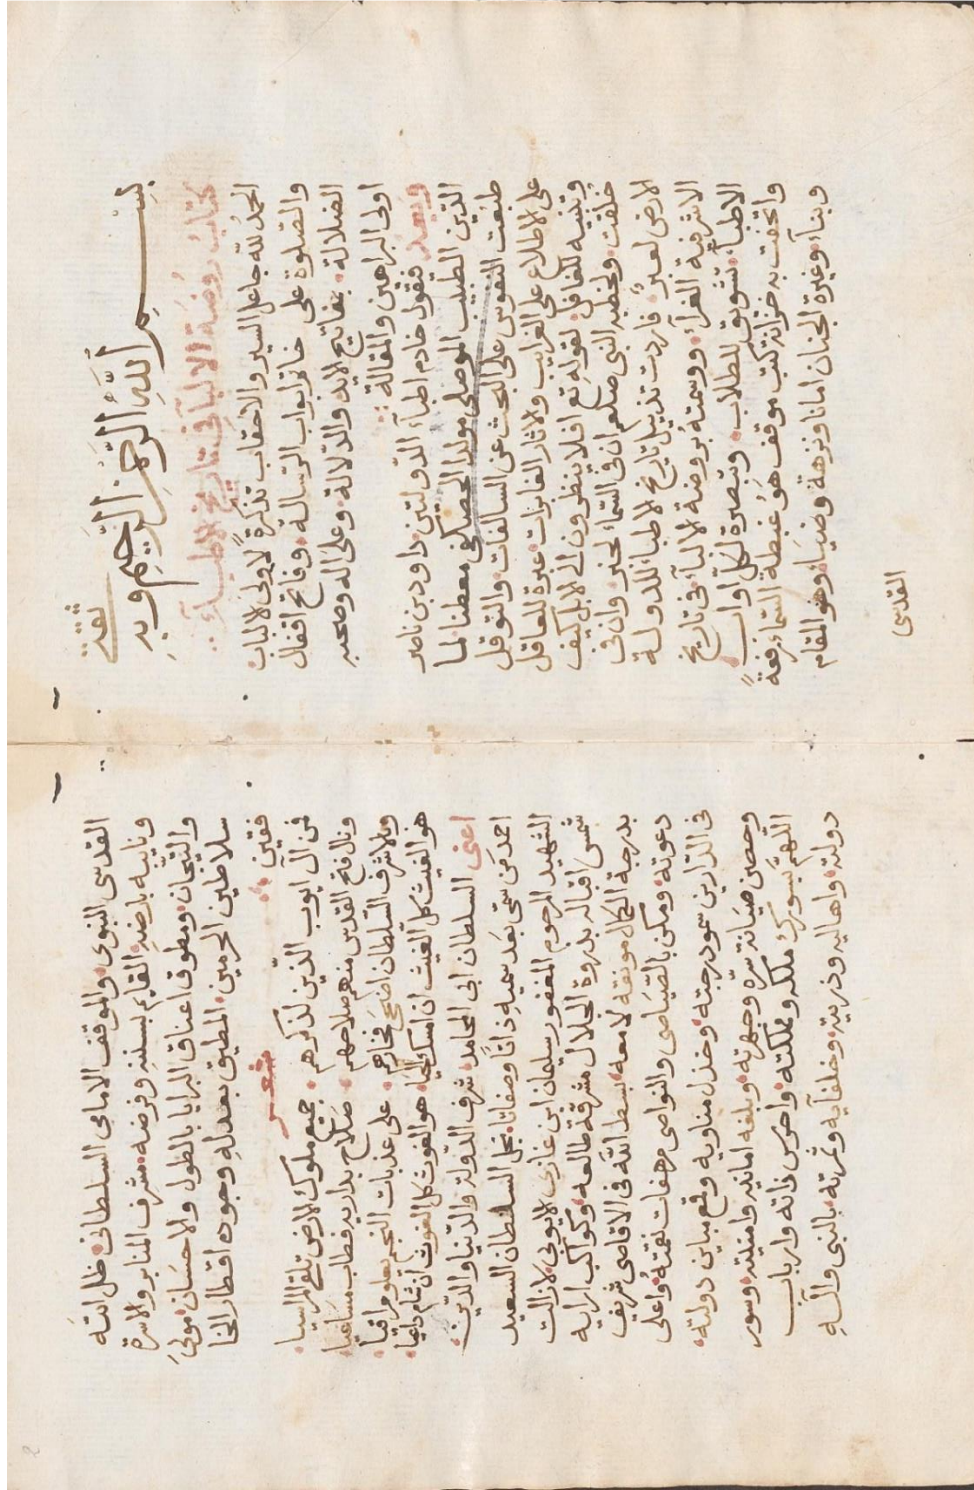 بسم الله الرحمن الرحيم وبه
ثقتي
كتاب روضة الالبا في تاريخ الاطباء
الحمد لله جاعل السير والاحقاب تذكرة لاولى الالباب
والصلوة على خاتم ابواب الرسالة وفاتح اقفال
الضلالة بمفاتيح الايد والدلالة وعلى اله وصحبه
اولى البراهين والمقالة
وبعد فيقول خادم اطباء الدولتين داود بن ناصر
الدين الطبيب الموصلى مولدا الحصكفى معطنا لما
طبعت النفوس على البحث عن السالفات والتوقل
على الاطلاع على الغرايب والاثار الغابرات عبرة للعاقل
وتنبيه للغافل لقوله تع افلا ينظرون الى الابل كيف
خلقت ولخطبه النبى صلعم ان فى السماء لخبر وان فى
الارض لعبر فاردت تذييل تاريخ الاطبا للدولة
الاشرفية الغراء ووسمته بروضة الالبا فى تاريخ
الاطباء تشويق للطلاب وتبصرة لكل اواب
واتحفت به خزانة كتب موقف هو غبطة السماء رفعة
وبناء وغيرة الجنان امانا ونزهة وضيا وهو المقام
القدسى
القدسى النبوى والموقف الامامى السلطانى ظل الله
ونايبه بارضه القايم بسننه وفرضه مشرف المنابر والاسرة
والتيجان ومطوق اعناق البرايا بالطول والاحسان مولى
سلاطين الحرمين المطبق بعدله وجوده اقطار الخا
فقين
شعر
فمن آل ايوب الذين لذكرهم جميع ملوك الارض تلقى المراسيا
ونال فتح القدس منهم صلاحهم صلاح بداريه فطاب مساعيا
وبالاشرف السلطان اضحى فخارهم على عذبات النجم يعلو مراقيا
هو الغيث كل الغيث ان امسك الحيا هو الغوث كل الغوث ان شام داعيا
اعنى السلطان ابى المحامد شرف الدولة والدنيا والدين
احمد من سمى بعد سميه ذاتا وصفاتا نجل السلطان السعيد
الشهيد المرحوم المغفور سليمان ابن غازى الايوبى لا زالت
شمس اقباله بذروة الجلال مشرقة طالعه وكواكب ارايه
بدرجة الكمال مونقة لامعه بسط الله فى الاقاصى شريف
دعوته ومكن بالصياصى والنواصى مرهفات نقمته واعلى
فى الدارين سمو درجته وخذل مناويه وقمع مباين دولته
وحصن صيانة سره وجهرته وبلغه امانيه وامنيته وسور
اللهم بسورك ملكه ومملكته واحرس ذاته وارباب
دولته واهاليه وذريته وخلفآيه وثمرته بالنبى واله